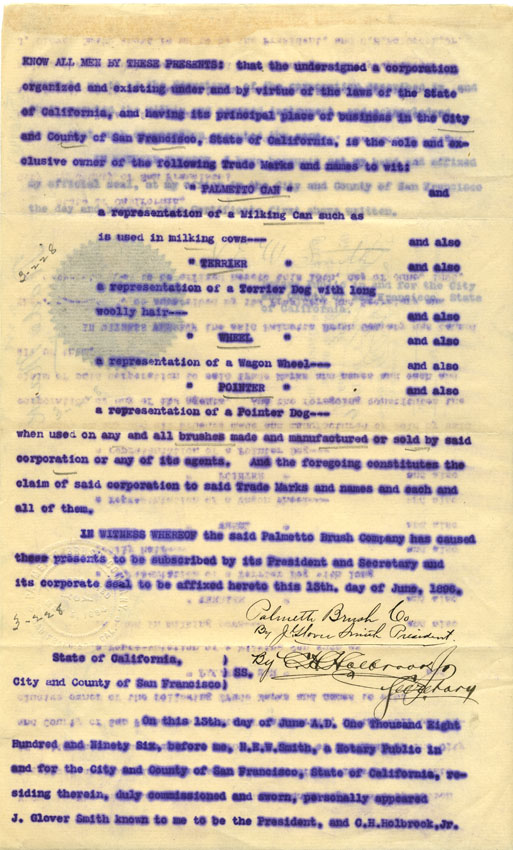 KNOW ALL MEN BY THESE PRESENTS: that the undersigned a corporation
organized and existing under and by virtue of the laws of the State
of California, and having its principal place of business in the City
and County of San Francisco, State of California, is the sole and ex-
clusive owner of the following Trade Marks and names to wit:
" PALMETTO CAN " and
a representation of a Milking Can such as
is used in milking cows--- and also
3-228
" TERRIER " and also
a representation of a Terrier Dog with long
woolly hair--- and also
" WHEEL " and also
a representation of a Wagon Wheel--- and also
" POINTER " and also
a representation of a Pointer Dog---
when used on any and all brushes made and manufactured or sold by said
corporation or any of its agents. And the foregoing constitutes the
claim of said corporation to said Trade Marks and names and each and
all of them.
IN WITNESS WHEREOF the said Palmetto Brush Company has caused
these presents to be subscribed by its President and Secretary and
its corporate seal to be affixed hereto this 13th. day of June, 1896.
3-228
Palmetto Brush Co
By J. Glover Smith President.
By C.H. Holbrook Jr
Secretary
State of California, )
) SS.
City and County of San Francisco)
On this 13th. day of June A.D. One Thousand Eight
Hundred and Ninety Six, before me, N.E.W.Smith, a Notary Public in
and for the City and County of San Francisco, State of California, re-
siding therein, duly commissioned and sworn, personally appeared
J. Glover Smith known to me to be the President, and C.H.Holbrook,Jr.